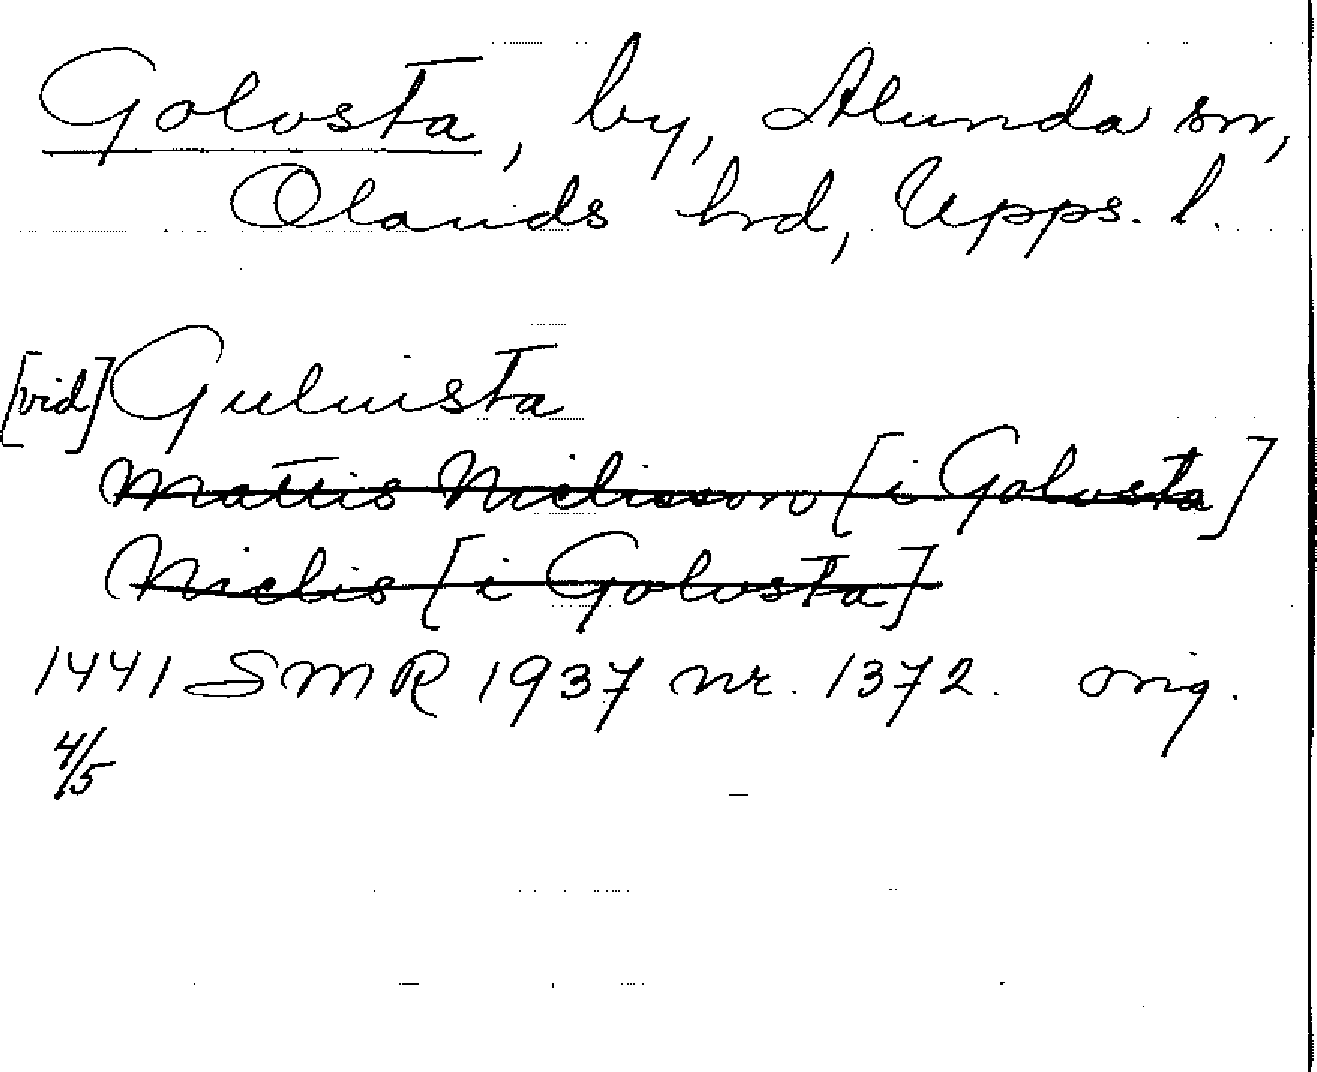 Golvsta, by, Alunda sn,
Olands hrd, Upps. l.
[vid] Guluista
Mattis Niclisson [i Golvsta]
Niclis [i Golvsta]
1441 SMR 1937 nr. 1372. orig.
4/5